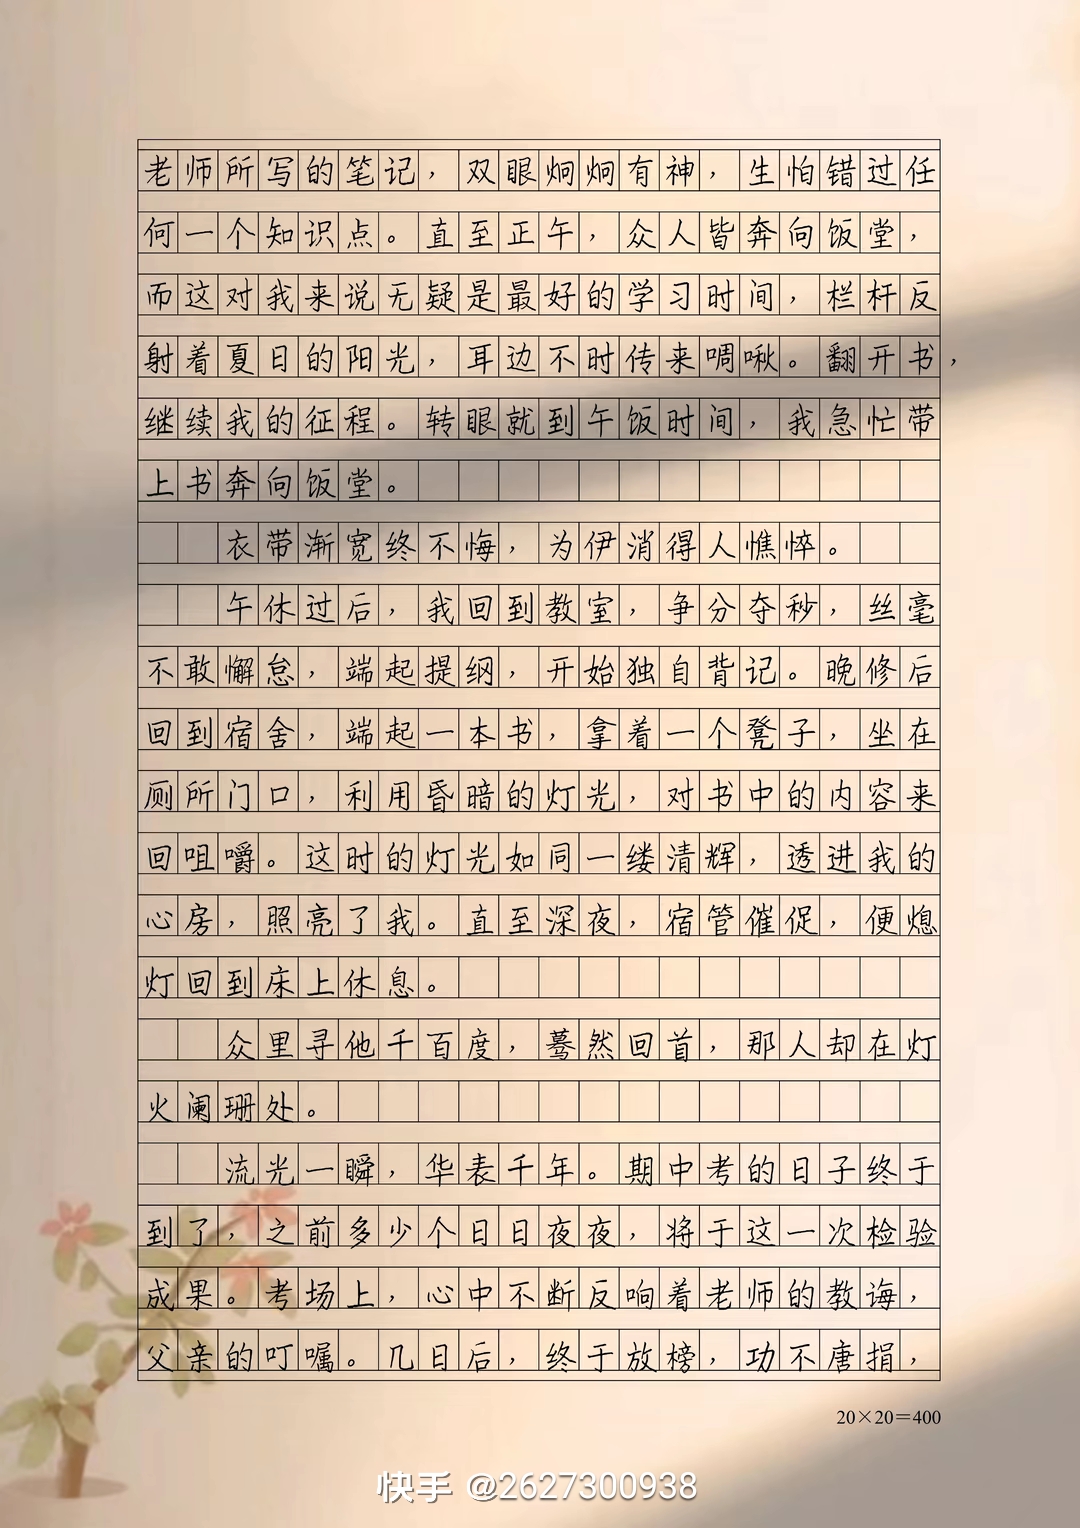 老师所写的笔记，双眼炯炯有神，生怕错过任
何一个知识点。直至正午，众人皆奔向饭堂，
而这对我来说无疑是最好的学习时间，栏杆反
射着夏日的阳光，耳边不时传来啁啾。翻开书，
继续我的征程。转眼就到午饭时间，我急忙带
上书奔向饭堂。
衣带渐宽终不悔，为伊消得人憔悴。
午休过后，我回到教室，争分夺秒，丝毫
不敢懈怠，端起提纲，开始独自背记。晚修后
回到宿舍，端起一本书，拿着一个凳子，坐在
厕所门口，利用昏暗的灯光，对书中的内容来
回咀嚼。这时的灯光如同一缕清辉，透进我的
心房，照亮了我。直至深夜，宿管催促，便熄
灯回到床上休息。
众里寻他千百度，蓦然回首，那人却在灯
火阑珊处。
流光一瞬，华表千年。期中考的日子终于
到了，之前多少个日日夜夜，将于这一次检验
成果。考场上，心中不断反响着老师的教诲，
父亲的叮嘱。几日后，终于放榜，功不唐捐，
20×20=400
快手 @2627300938